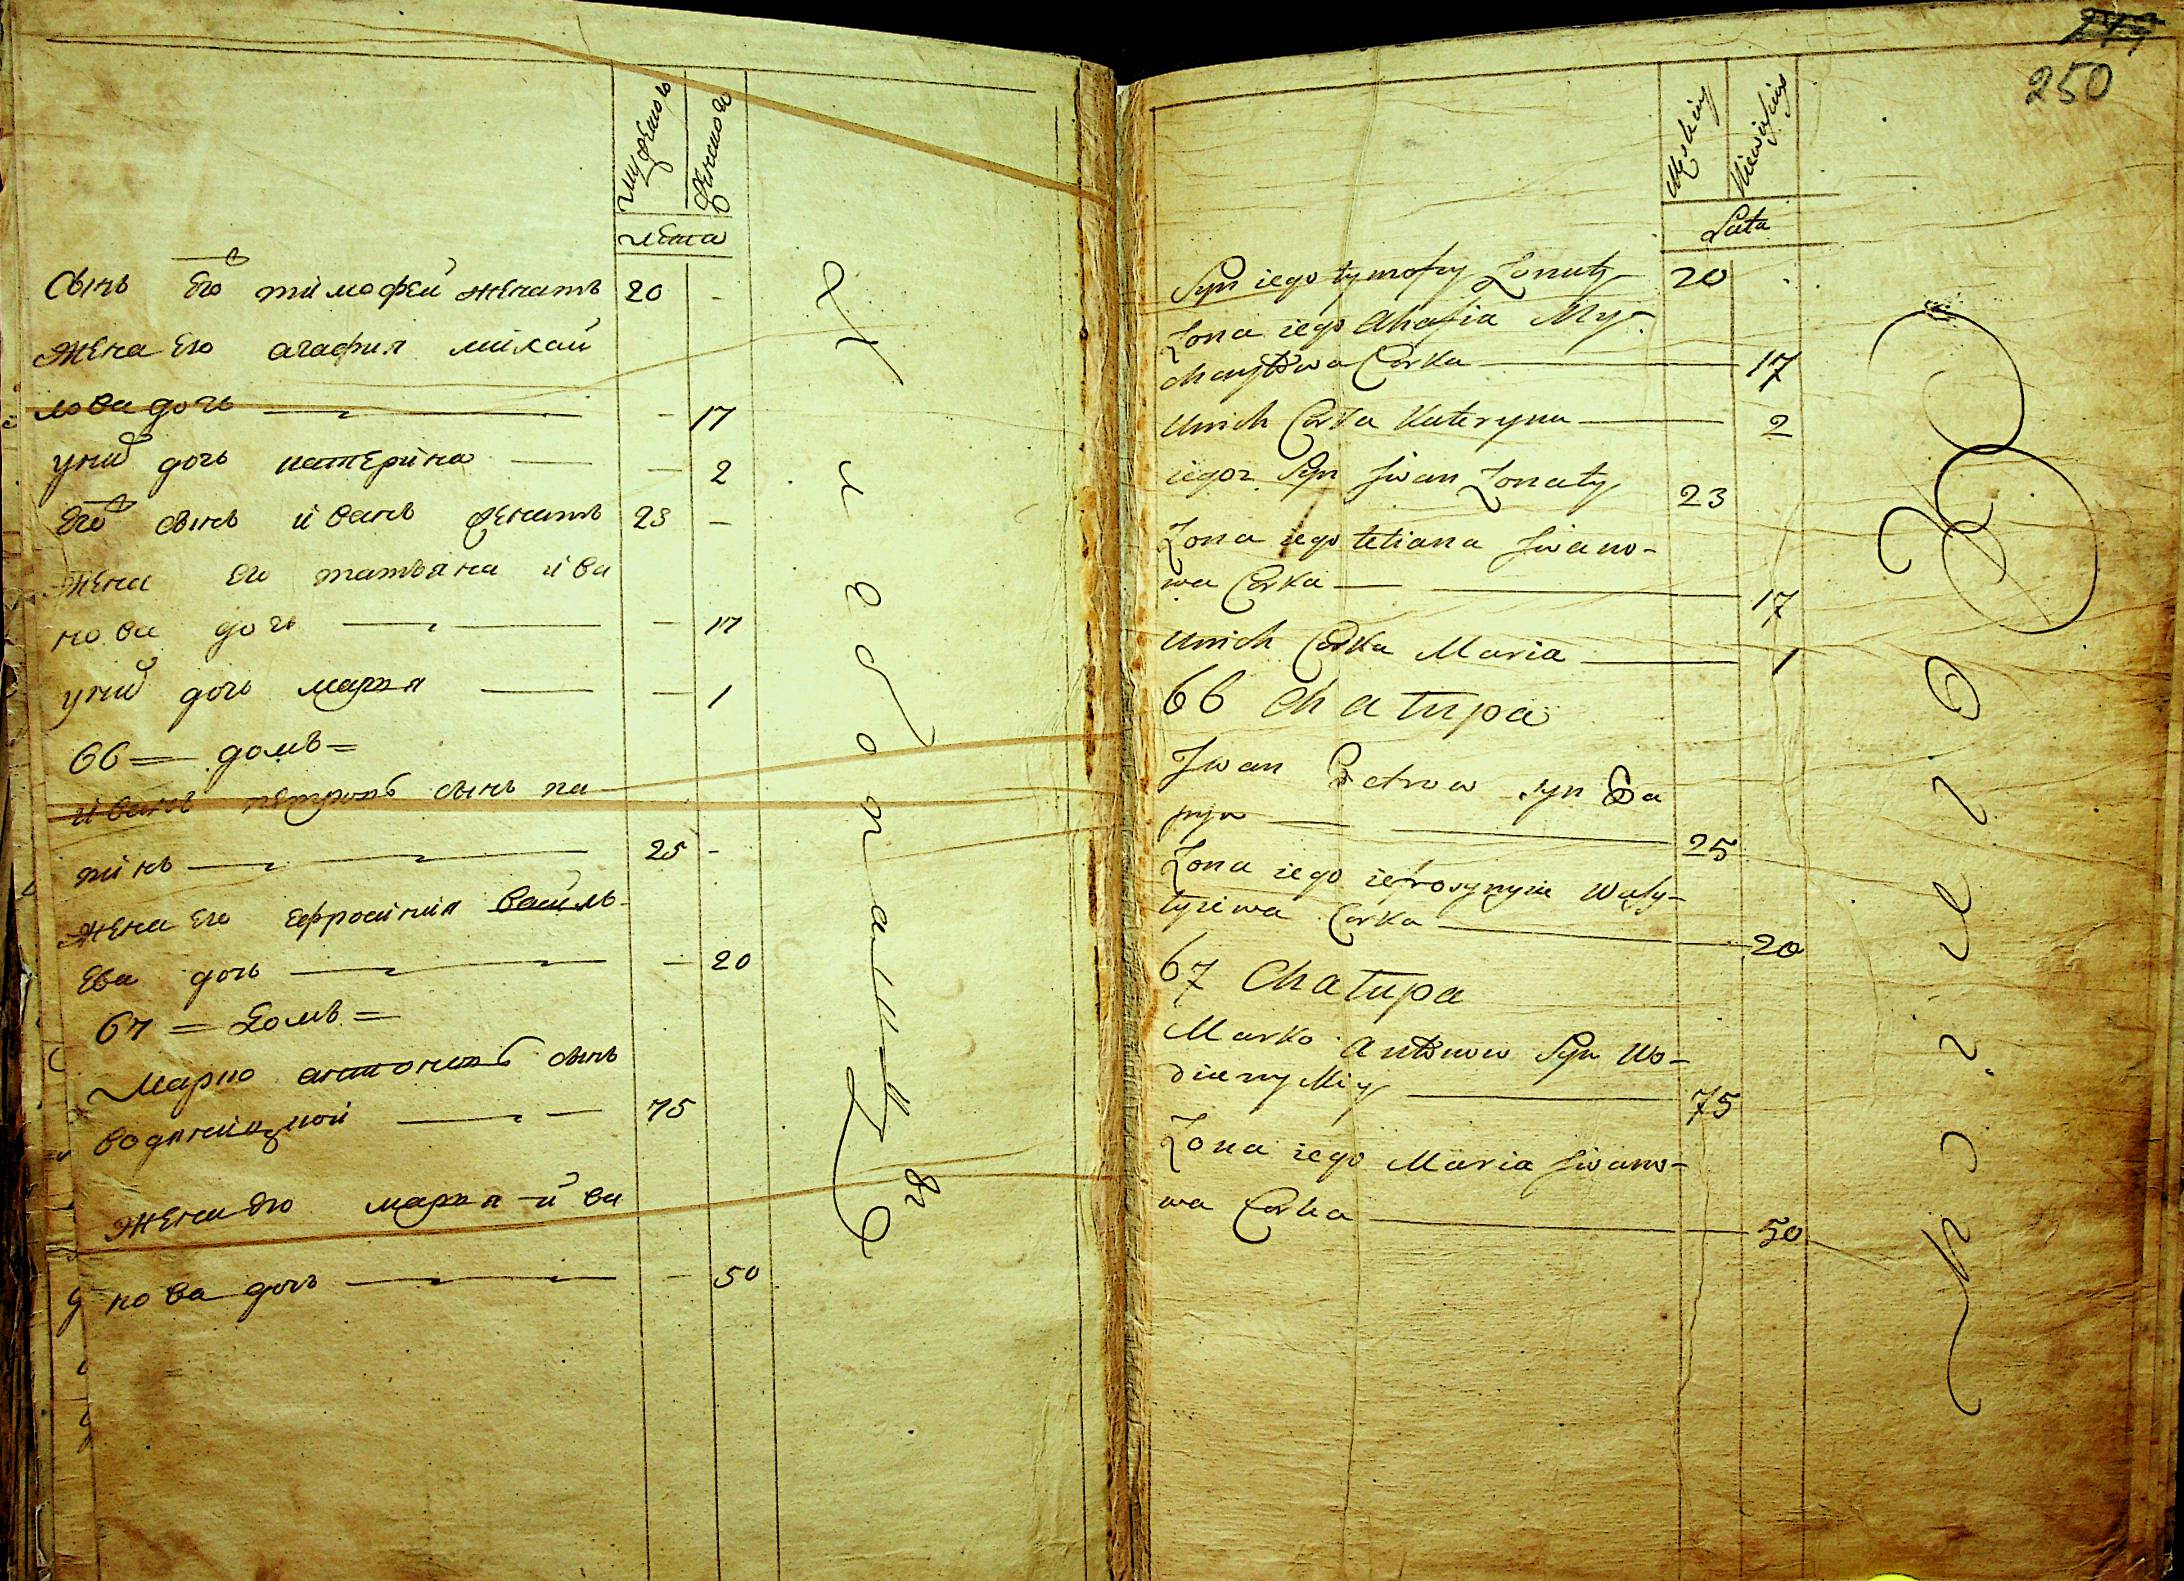 мужеска женска
лѣта
сынъ его тимофей женатъ 20 -
жена его агафия михай
лова дочь - 17
у них дочь катерина - 2
его сынъ иванъ женатъ 23 -
жена его татьяна ива
нова дочь - 17
у них дочь марья - 1
66 = домъ =
иванъ петровъ сынъ па
нинъ 25 -
жена его ефросиния василь
ева дочь - 20
67 = домъ =
марко антоновъ сынъ
75
жена его марья ива
нова дочь - 50
250
Męskiey Niewieściey
Lata
Syn iego tymofey Żonaty 20
Żona iego Ahafia My-
chayłowa Corka 17
Unich Corka Kateryna 2
iegoz Syn Jwan Żonaty 23
Żona iego tetiana Jwano-
wa Corka 17
Unich Corka Maria 1
66 Chałupa
Jwan Petrow syn
25
Żona iego iefrosynyia Wasy-
lyiewa Corka 20
67 Chałupa
Marko Antonow Syn Wo-
75
Żona iego Maria Jwano-
wa Corka 50